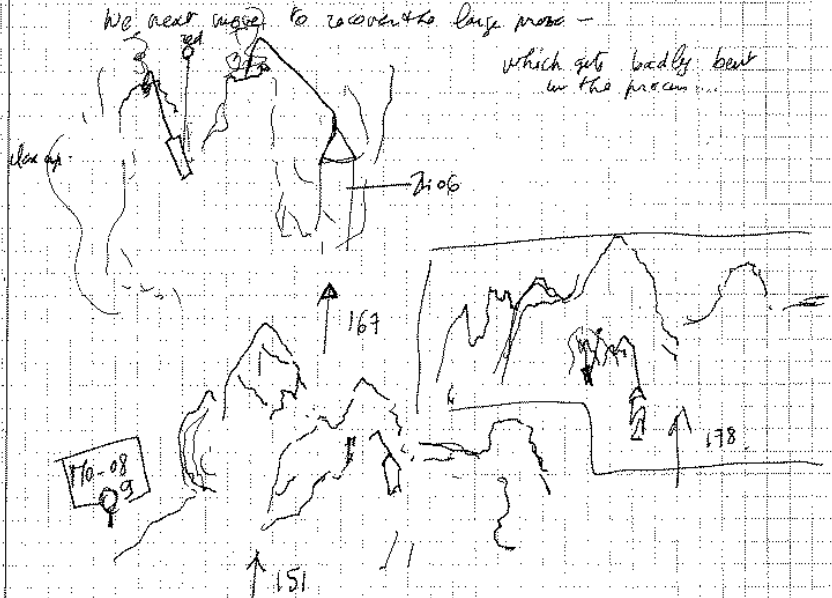 We next move to recover the large probe —
which gets badly bent
in the process...
red
close up.
167
Mo-08
9
178
151